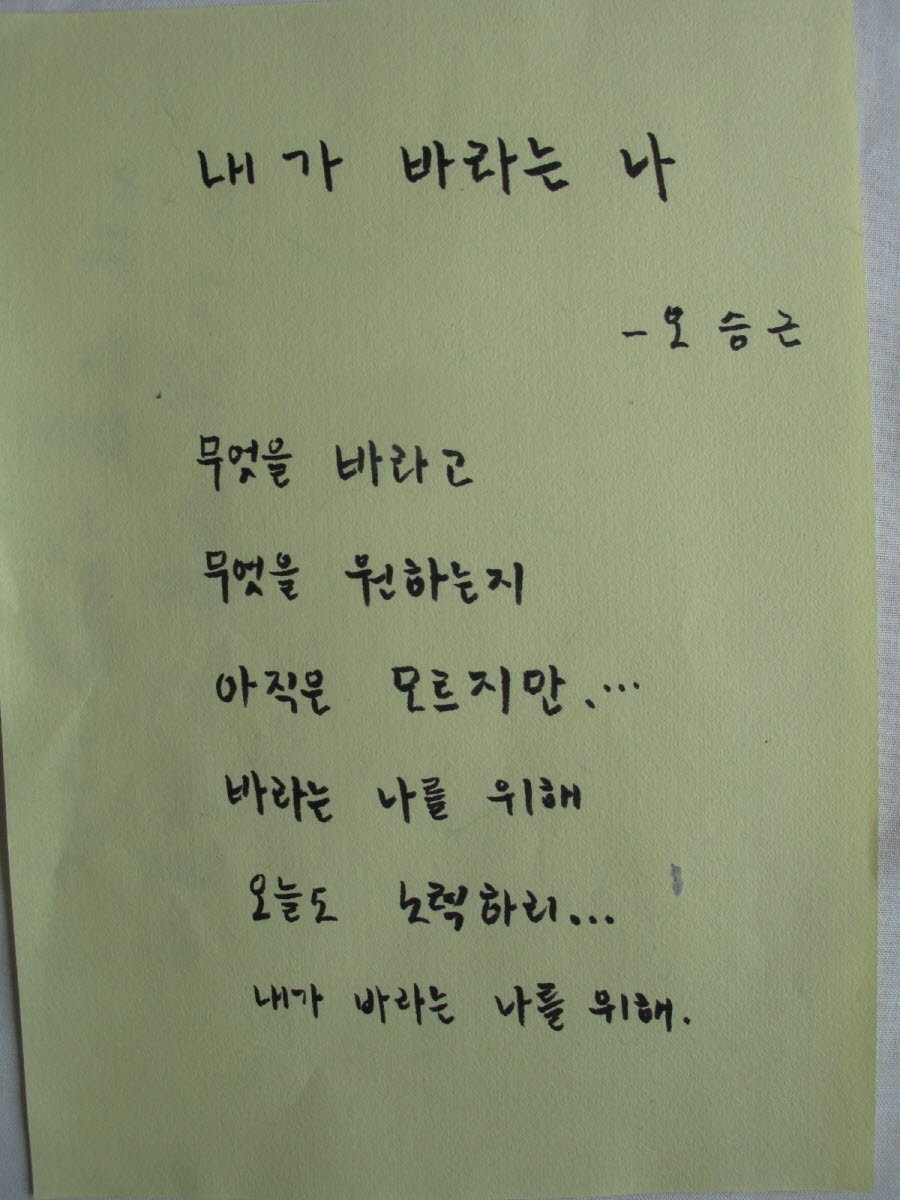 내가 바라는 나
- 오승근
무엇을 바라고
무엇을 원하는지
아직은 모르지만....
바라는 나를 위해
오늘도 노력하리...
내가 바라는 나를 위해.